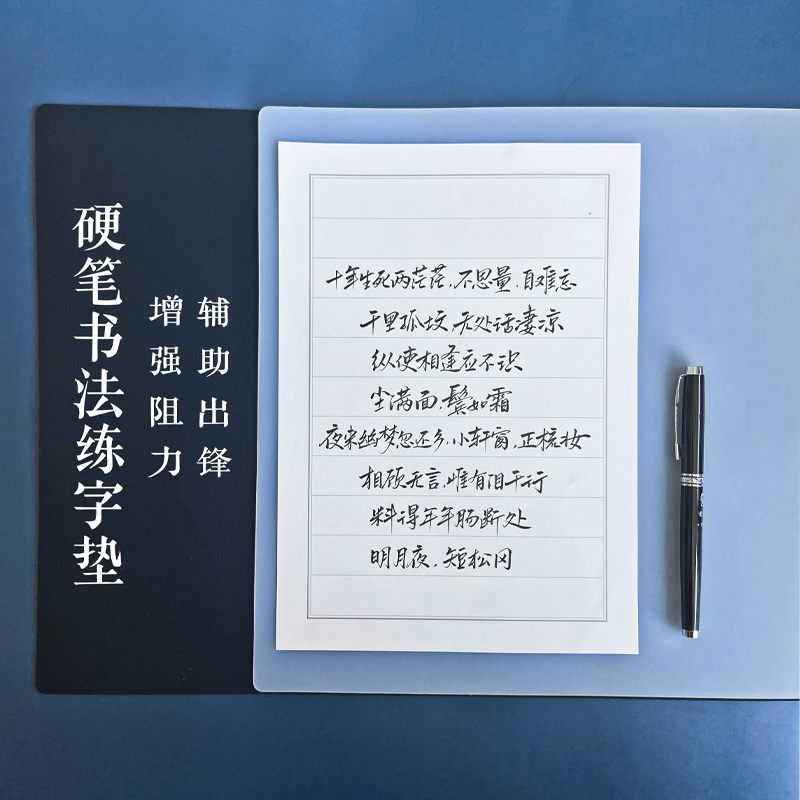 硬笔书法练字垫
辅助出锋
增强阻力
十年生死两茫茫，不思量，自难忘
千里孤坟，无处话凄凉
纵使相逢应不识
尘满面，鬓如霜
夜来幽梦忽还乡，小轩窗，正梳妆
相顾无言，惟有泪千行
料得年年肠断处
明月夜，短松冈